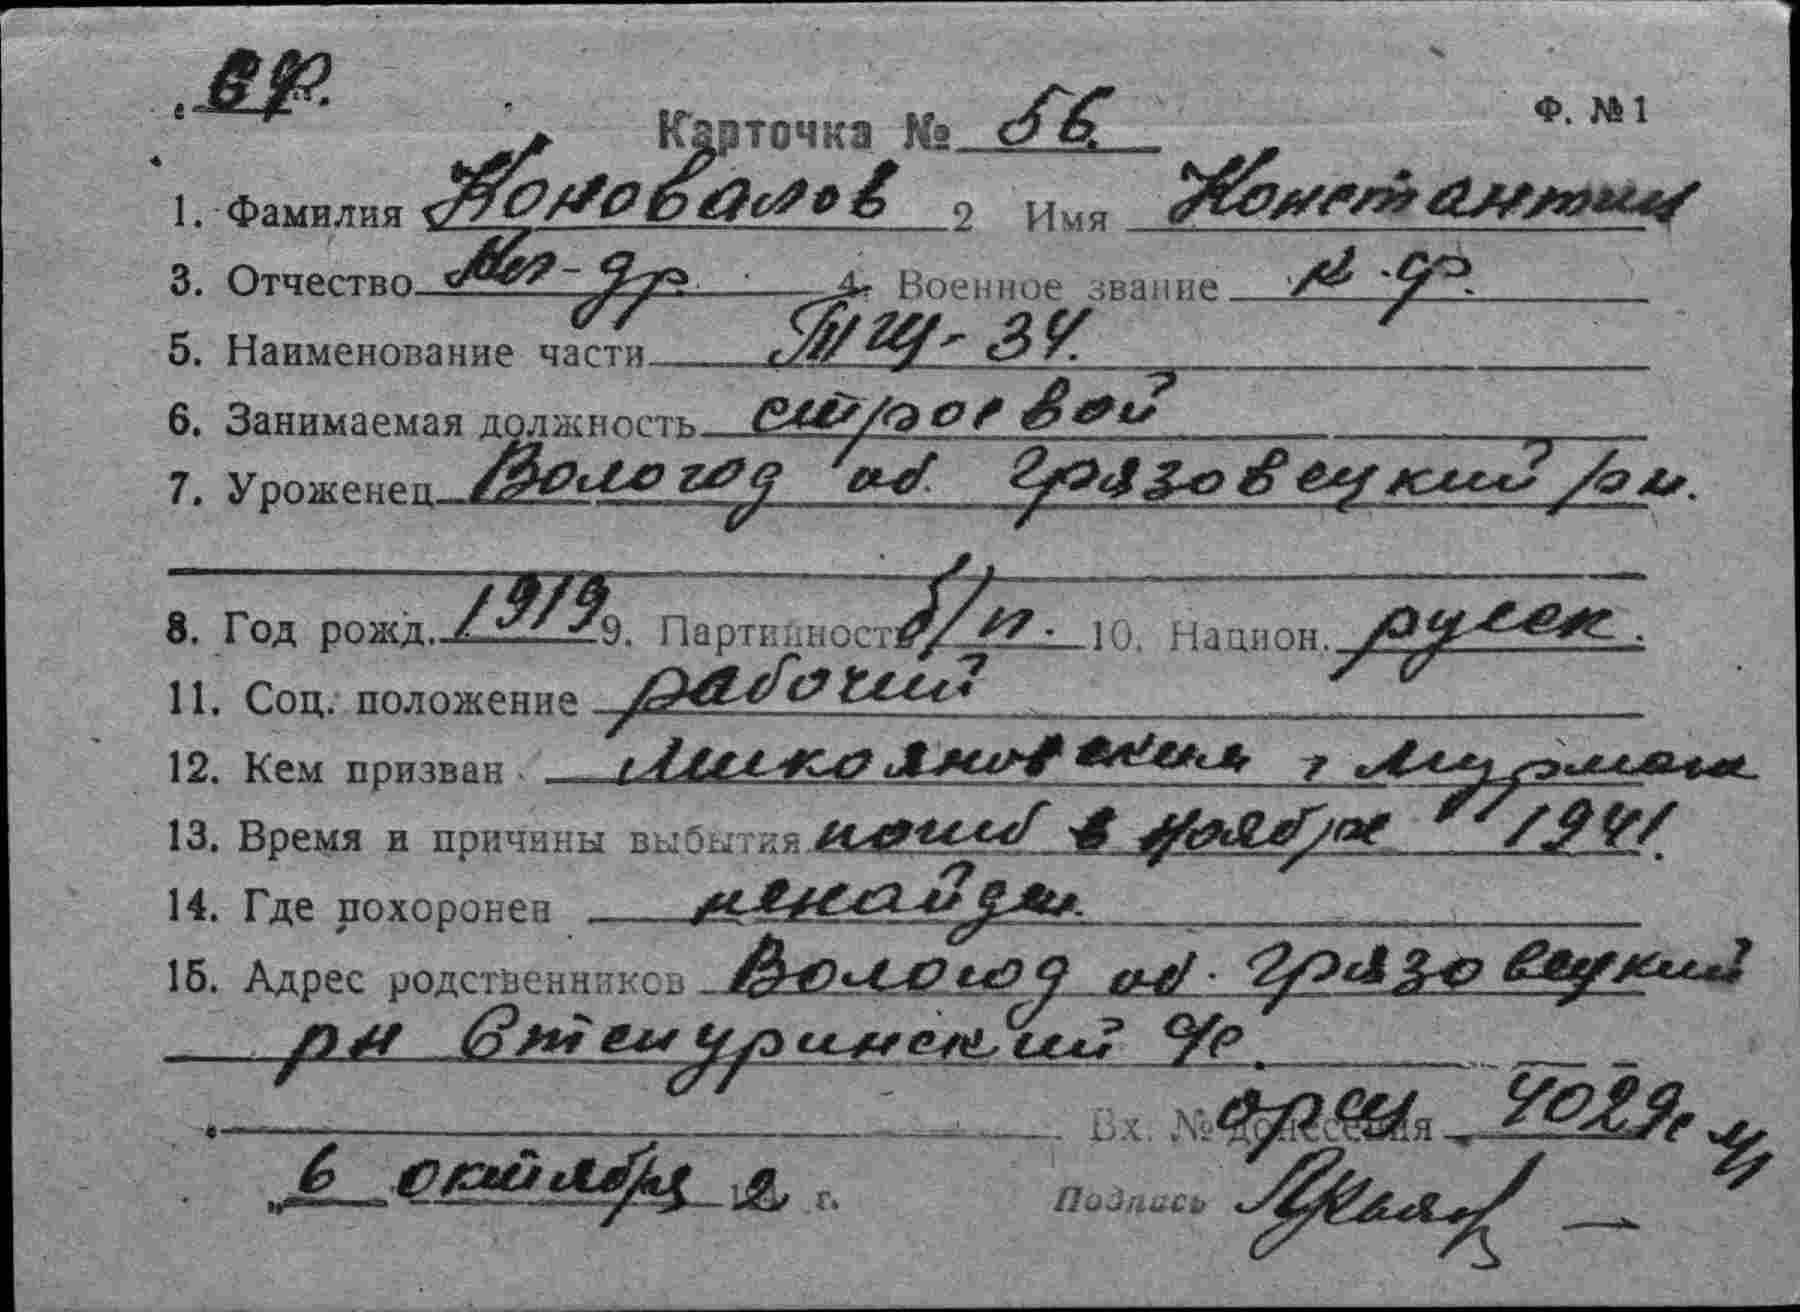 СФ.
Карточка № 56.
Ф. № 1
1. Фамилия Коновалов 2 Имя Константин
3. Отчество Ал-др. 4. Военное звание к.ф.
5. Наименование части ТЩ-34.
6. Занимаемая должность строевой
7. Уроженец Вологод об. Грязовецкий рн.
8. Год рожд. 1919 9. Партийность б/п. 10. Национ. русск.
11. Соц. положение рабочий
12. Кем призван Микояновским г Мурманск
13. Время и причины выбытия погиб в ноябре 1941.
14. Где похоронен ненайден.
15. Адрес родственников Вологод об. Грязовецкий
рн с/с.
Вх. № донесения 4029с
„6 октября 2 г. Подпись